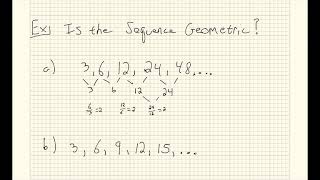 Ex: Is the Sequence Geometric?
a) 3, 6, 12, 24, 48, ...
3 6 12 24
6/3=2 12/6=2 24/12=2
b) 3, 6, 9, 12, 15, ...